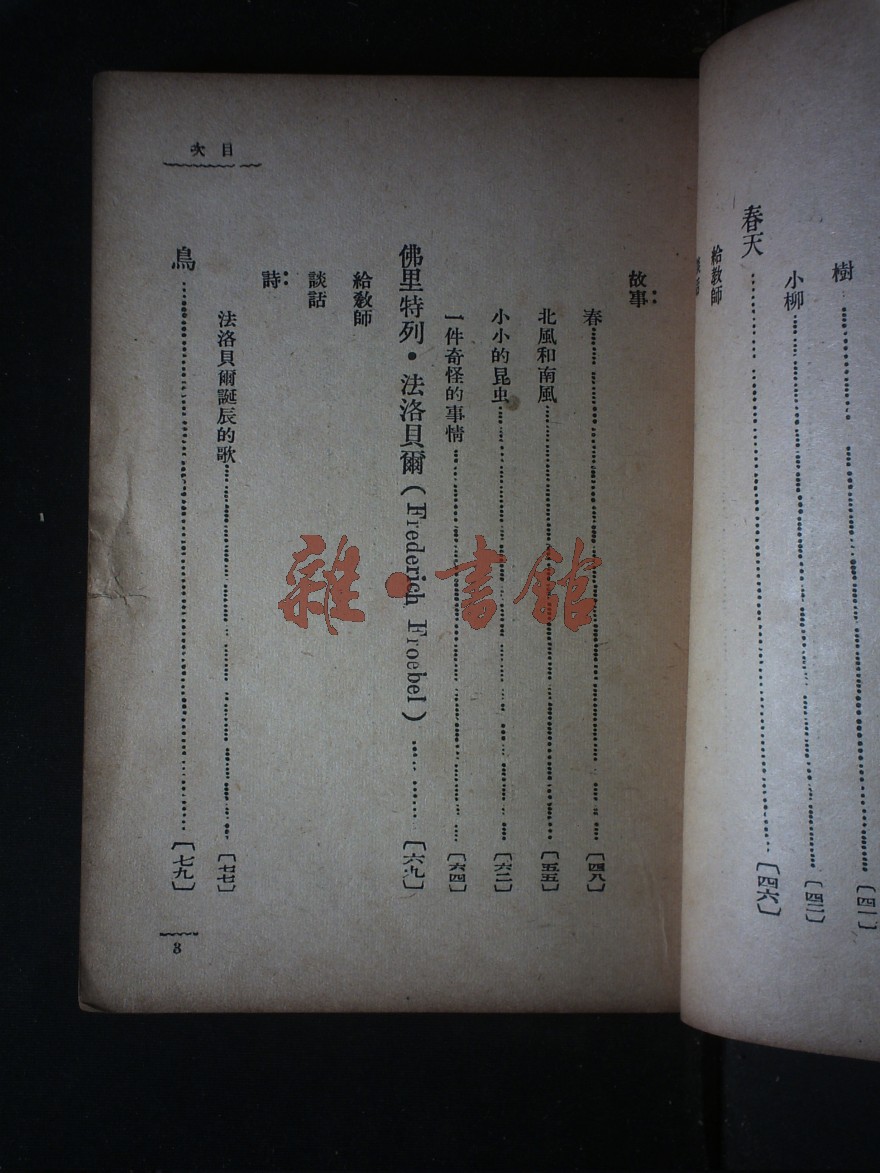 樹 〔四一〕
小柳 〔四二〕
春天 〔四六〕
給教師
談話
目次
故事：
春 〔四八〕
北風和南風 〔五五〕
小小的昆虫 〔六二〕
一件奇怪的事情 〔六四〕
佛里特列・法洛貝爾（Frederich Froebel） 〔六九〕
給教師
談話
詩：
法洛貝爾誕辰的歌 〔七七〕
鳥 〔七九〕
8
雜・書館